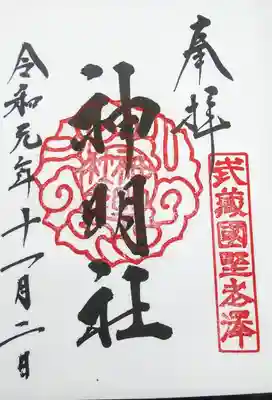 奉拝
武藏國野老澤
神明社
令和元年十一月二日